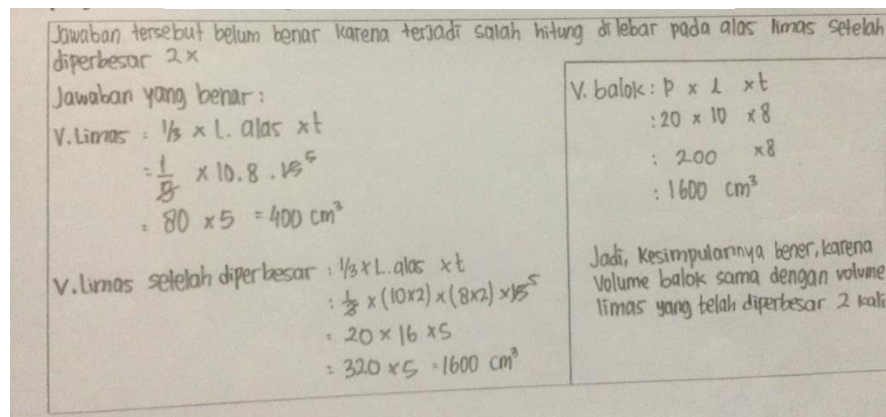 Jawaban tersebut belum benar karena terjadi salah hitung di lebar pada alas limas setelah
diperbesar 2x
Jawaban yang benar :
V. Limas : 1/3 x L. alas x t
= 1/3 x 10.8 . 15 5
= 80 x 5 = 400 cm³
V. limas setelah diperbesar : 1/3 x L. alas x t
: 1/3 x (10x2) x (8x2) x 15 5
= 20 x 16 x 5
: 320 x 5 = 1600 cm³
V. balok : p x l x t
: 20 x 10 x 8
: 200 x 8
: 1600 cm³
Jadi, Kesimpulannya bener, karena
Volume balok sama dengan volume
limas yang telah diperbesar 2 kali